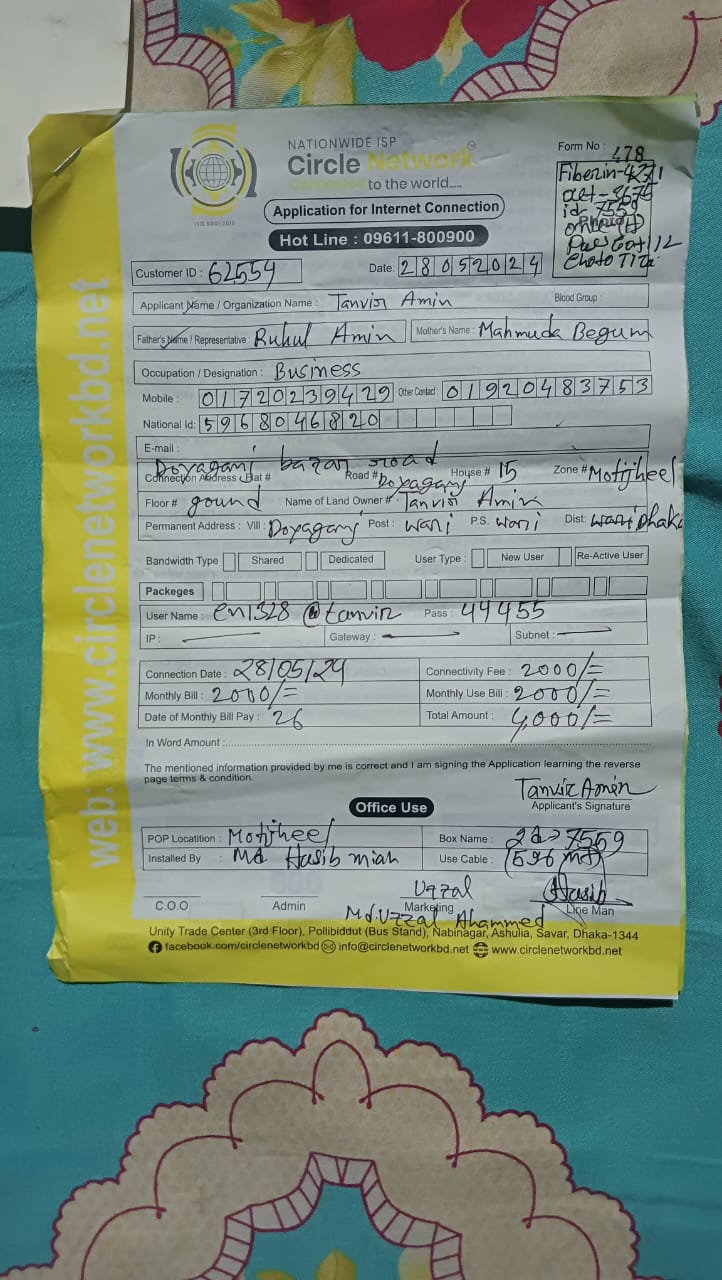 NATIONWIDE ISP
Circle Network
Connected to the world.....
ISO 9001:2015
Application for Internet Connection
Hot Line : 09611-800900
Form No : 478
Fiberin-4271
out-3675
id-7559
Photo
Customer ID : 62554
Date: 28052024
Applicant Name / Organization Name : Tanvir Amin Blood Group :
Father's Name / Representative : Ruhul Amin Mother's Name : Mahmuda Begum
Occupation / Designation : Business
Mobile : 01720239429 Other Contact : 01920483753
National Id: 5968046820
E-mail :
Doyaganj bazar road
Connection Address : Flat # Road # Doyaganj House # 15 Zone # Motijheel
Floor # gound Name of Land Owner # Tanvir Amin
Permanent Address : Vill : Doyaganj Post : wari P.S. wari Dist: Dhaka
Bandwidth Type Shared Dedicated User Type : New User Re-Active User
Packeges
User Name : en1328@tanvir Pass : 44455
IP : Gateway : Subnet :
Connection Date : 28/05/24 Connectivity Fee : 2000/=
Monthly Bill : 2000/= Monthly Use Bill : 2000/=
Date of Monthly Bill Pay : 26 Total Amount : 4,000/=
In Word Amount :
The mentioned information provided by me is correct and I am signing the Application learning the reverse
page terms & condition.
Tanvir Amin
Applicant's Signature
Office Use
POP Locatition : Motijheel Box Name : 7559
Installed By : Md Hasib miah Use Cable :
Uzzal Hasib
C.O.O Admin Marketing Line Man
Md. Uzzal Ahammed
Unity Trade Center (3rd Floor), Pollibiddut (Bus Stand), Nabinagar, Ashulia, Savar, Dhaka-1344
facebook.com/circlenetworkbd info@circlenetworkbd.net www.circlenetworkbd.net
web: www.circlenetworkbd.net